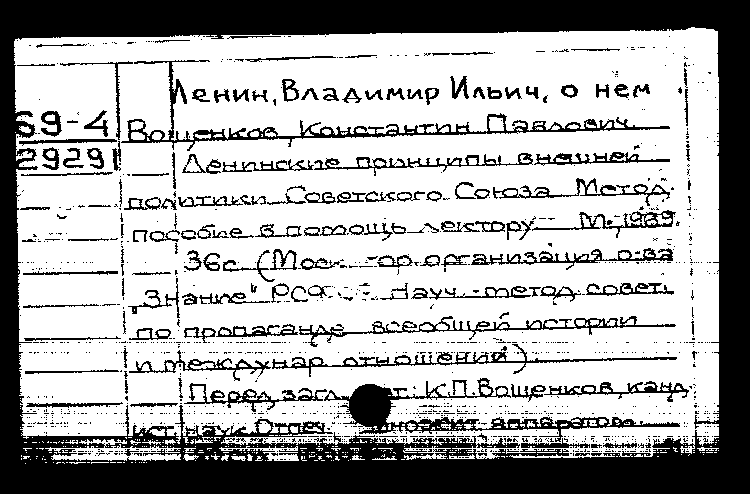 Ленин, Владимир Ильич, о нем
69-4
29291
Вощенков, Константин Павлович.
Ленинские принципы внешней
политики Советского Союза Метод.
пособие в помощь лектору М., 1969.
36с. (Моск. гор. организация о-ва
"Знание" РСФСР. Науч.-метод. совет
по пропаганде всеобщей истории
и междунар. отношений).
Перед загл. авт.: К.П. Вощенков, канд.
ист. наук. Отпеч. множит. аппаратом.